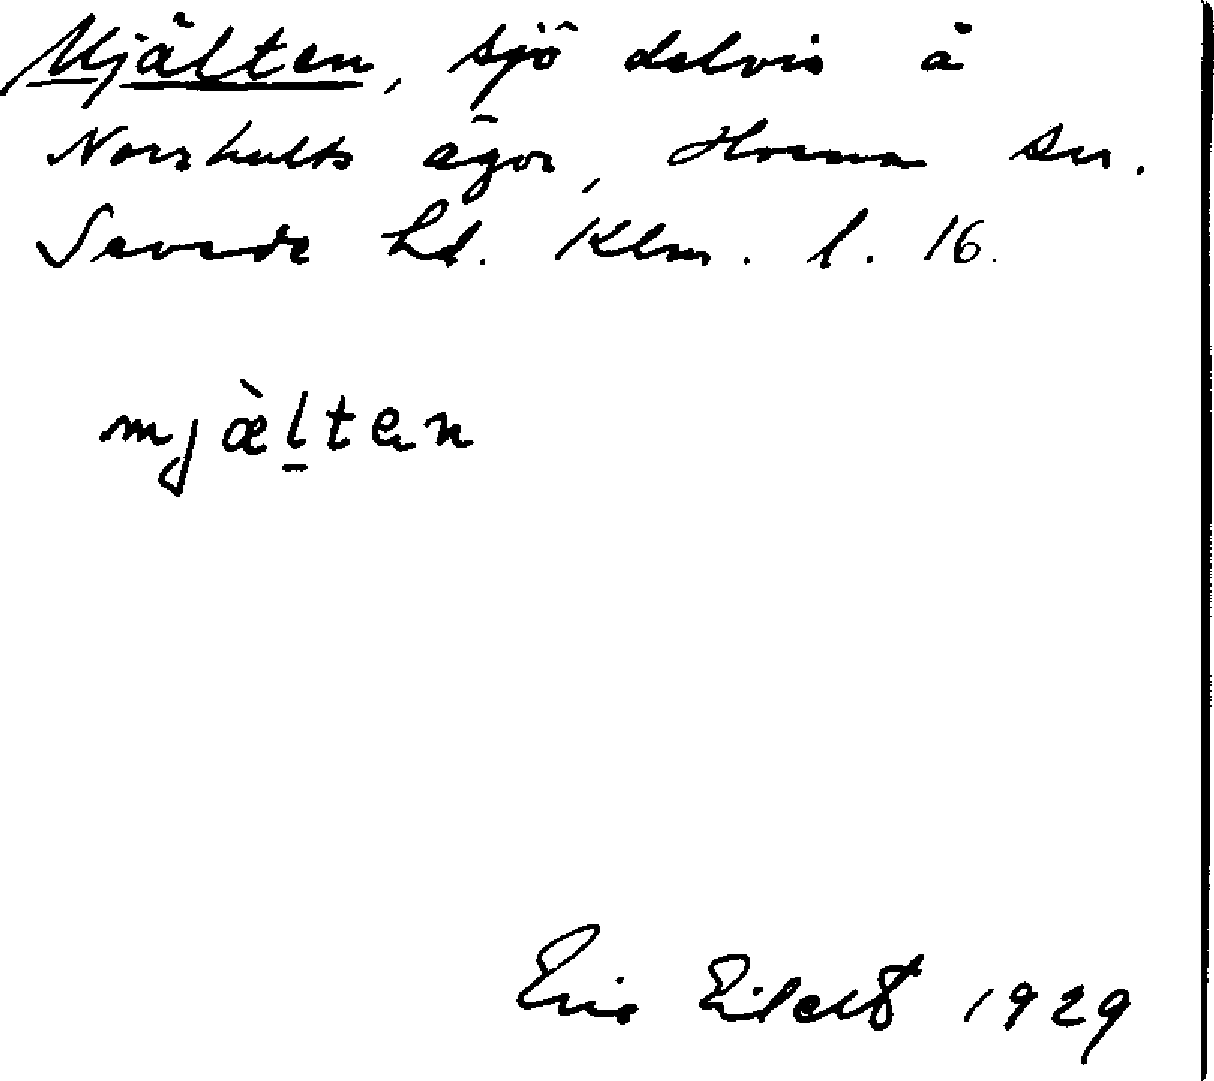 Mjälten, sjö delvis å
Norrhults ägor, Horns sn.
Sevede hd. Klm. l. 16.
mjæ̀lten
Eric Eilert 1929